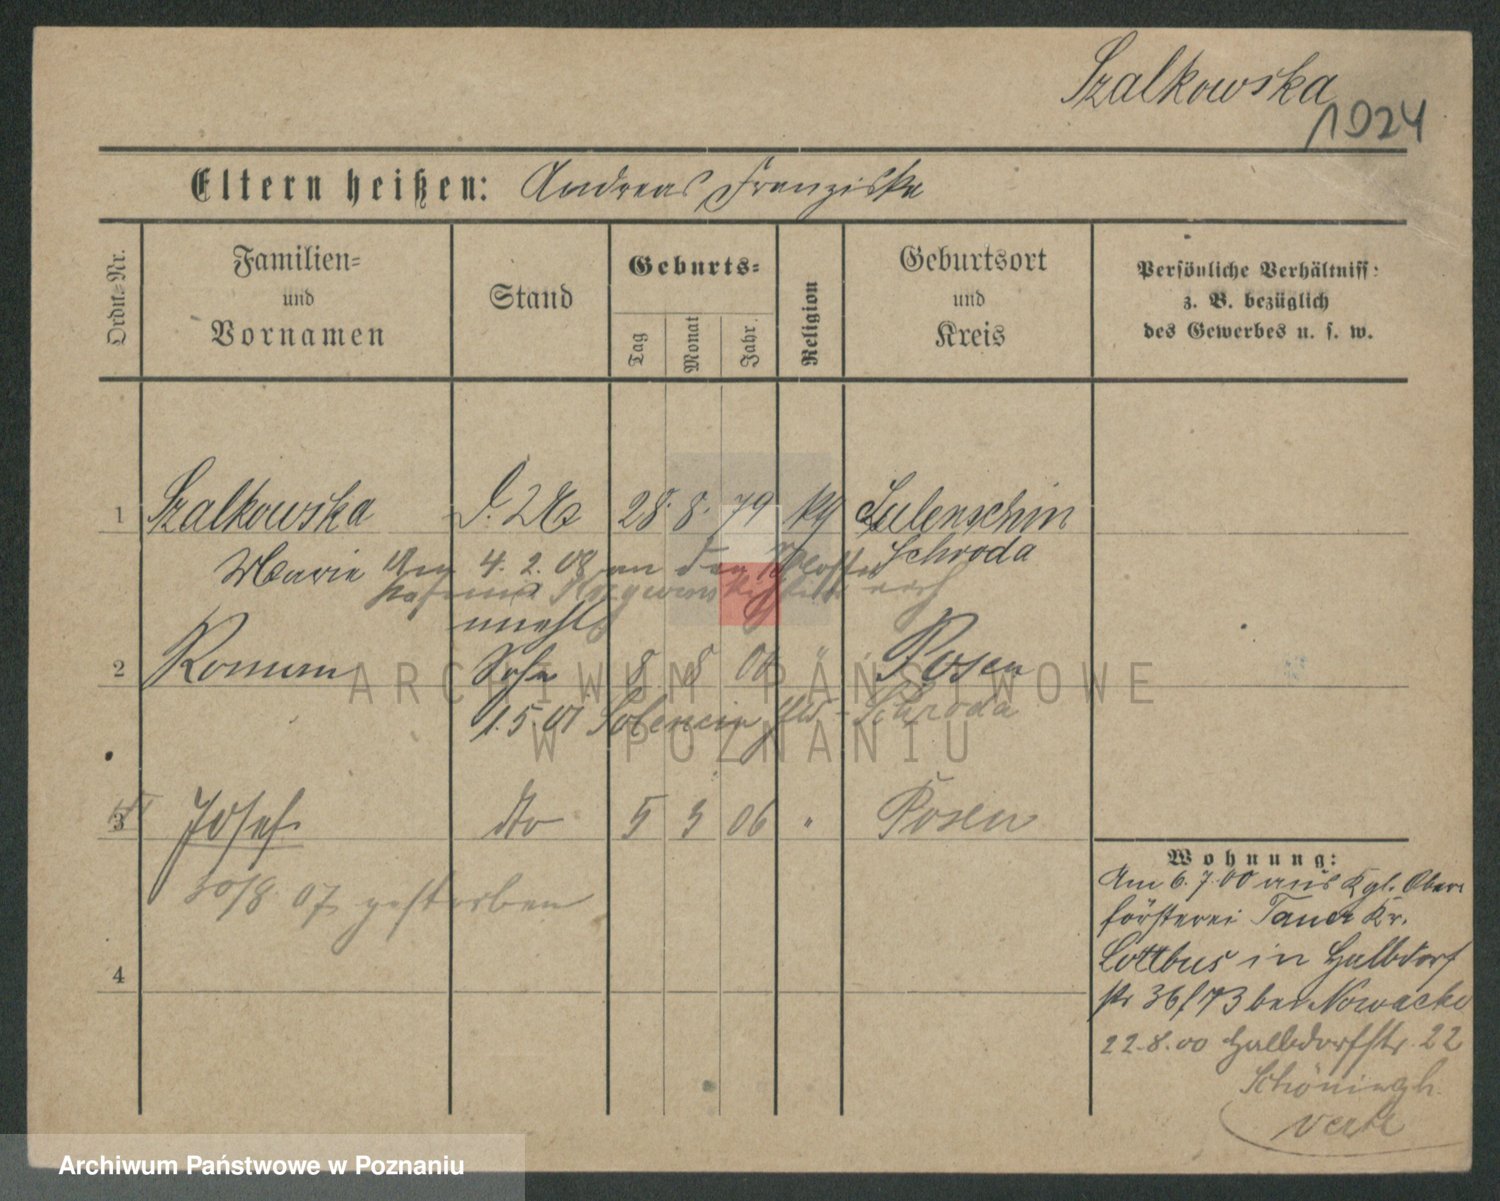 Szalkowska
1924
Eltern heißen: Andreas Franziska
Ordn.-Nr.
Familien- und Vornamen
Stand
Geburts-
Tag
Monat
Jahr.
Religion
Geburtsort und Kreis
Persönliche Verhältniss:
z. B. bezüglich
des Gewerbes u. s. w.
1 Szalkowska 28. 8. 79 Sulenschin
Marie 4. 2. 08 an den Schroda
unehl
2 Roman Sohn 8 8 00 " Posen
1.5.01 Solencin Schroda
3 Josef dto 5 3 06 " Posen
30/8. 07 gestorben
4
Wohnung:
Am 6. 7. 00 aus Kgl. Ober-
försterei Tauer Kr.
Cottbus in Halbdorf
str 36/ 73 bei Nowacki
22.8.00 Halbdorfstr. 22
Schöningh
verte
ARCHIWUM PAŃSTWOWE
W POZNANIU
Archiwum Państwowe w Poznaniu